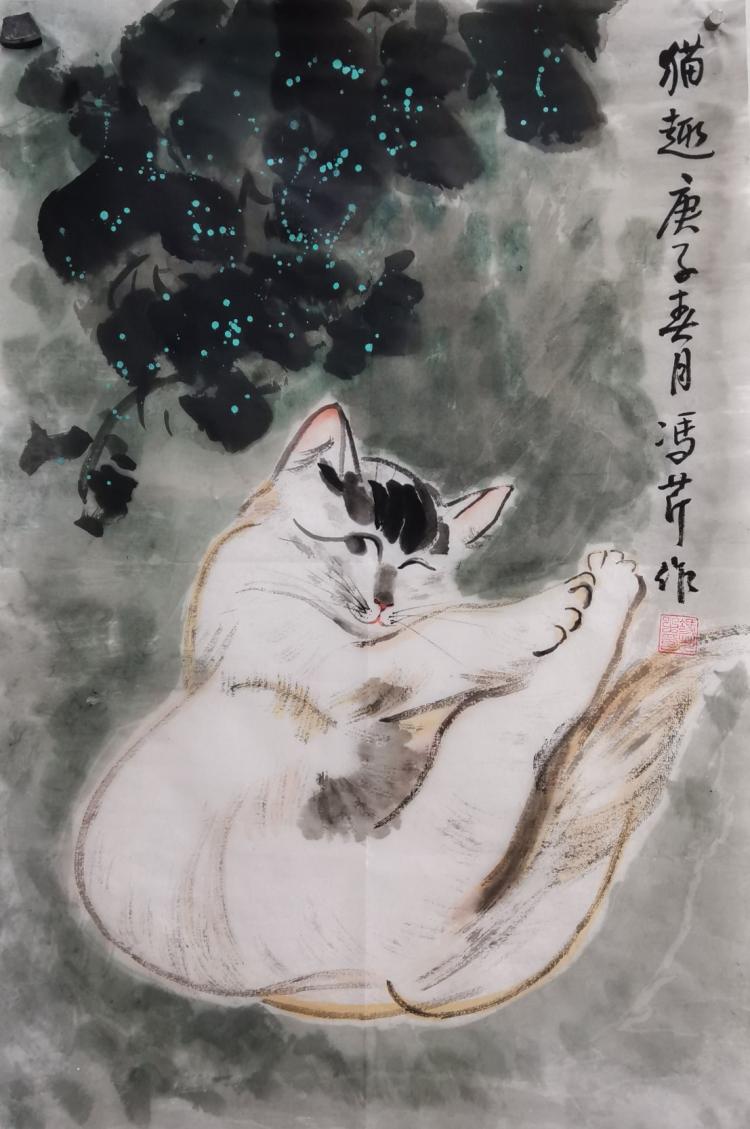 猫趣庚子春月冯芹作